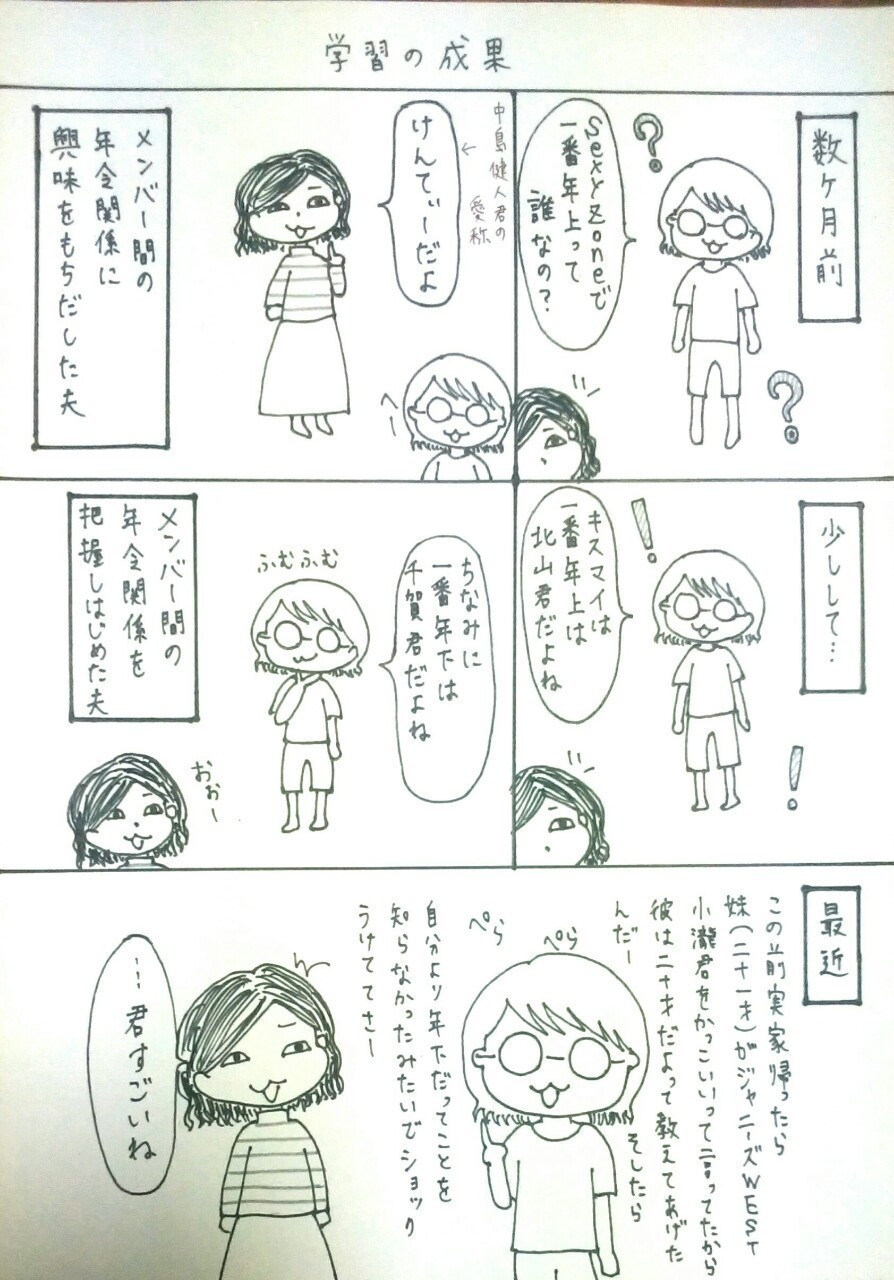 学習の成果
数ヶ月前
SexyZoneで
一番年上って
誰なの?
中島健人君の
愛称
けんてぃーだよ
へー
メンバー間の
年令関係に
興味をもちだした夫
少しして…
キスマイは
一番年上は
北山君だよね
ちなみに
一番年下は
千賀君だよね
ふむふむ
メンバー間の
年令関係を
把握しはじめた夫
おぉー
最近
この前実家帰ったら
妹(二十一才)がジャニーズWEST
小瀧君をかっこいいって言ってたから
彼は二十才だよって教えてあげた
んだー
そしたら
ぺら
ぺら
自分より年下だってことを
知らなかったみたいでショック
うけててさー
…君すごいね